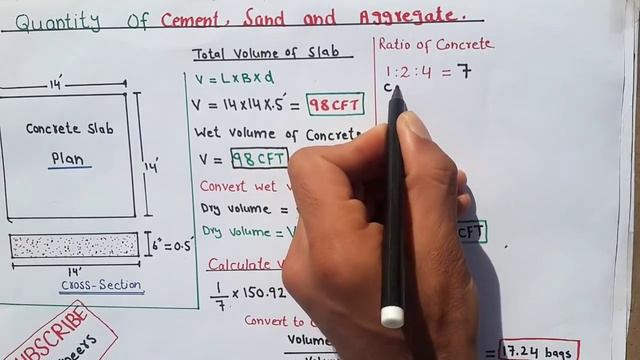 Quantity Of Cement, Sand and Aggregate.
14'
Concrete Slab
Plan
14'
6" = 0.5'
14'
Cross-Section
SUBSCRIBE
Total Volume of Slab
V = L×B×d
V = 14×14×.5' = 98 CFT
Wet Volume of Concrete
V = 98 CFT
Convert wet
Dry volume =
Dry Volume =
CFT
Calculate
1/7 × 150.92
Convert to
Volume
= 17.24 bags
Ratio of Concrete
1:2:4 = 7
C